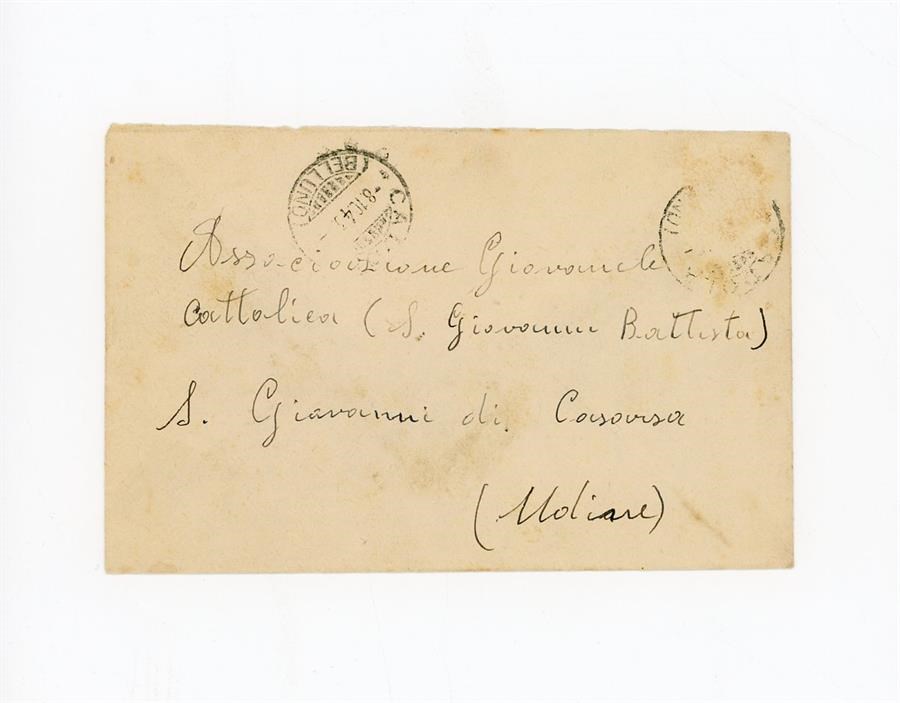 (BELLUNO)
Associazione Giovanile
Cattolica (S. Giovanni Battista)
S. Giovanni di Casarsa
(Udine)